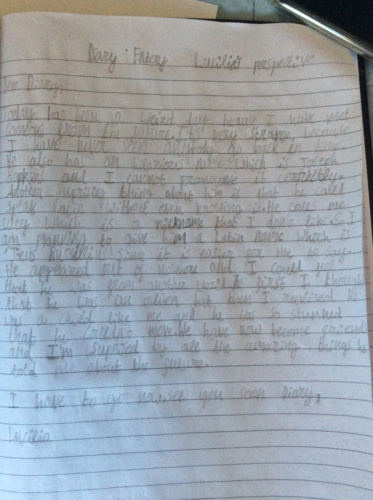 Diary Entry Lucilia's perspective
Dear Diary,
Today has been a weird day because I have met
someone from the future. It's very strange because
I have never seen anybody go back in time.
He also has an name which is Joseph
Hopkins and I cannot pronounce it correctly.
Another suprising thing about him is that he could
speak Latin without even knowing it. He calls me
which is a nickname that I don't like. So I
am planning to give him a Latin name which is
since it is easier for me to say.
He appeared out of nowhere and I could tell
that he was from another world. At first I thought
that he was an alien but then I realised he
was a child like me and he was so stunned
that he couldn't move. We have now become friends
and I'm suprised by all the amazing things he
told me about the future.
I have to go see you soon Diary,
Lucilia